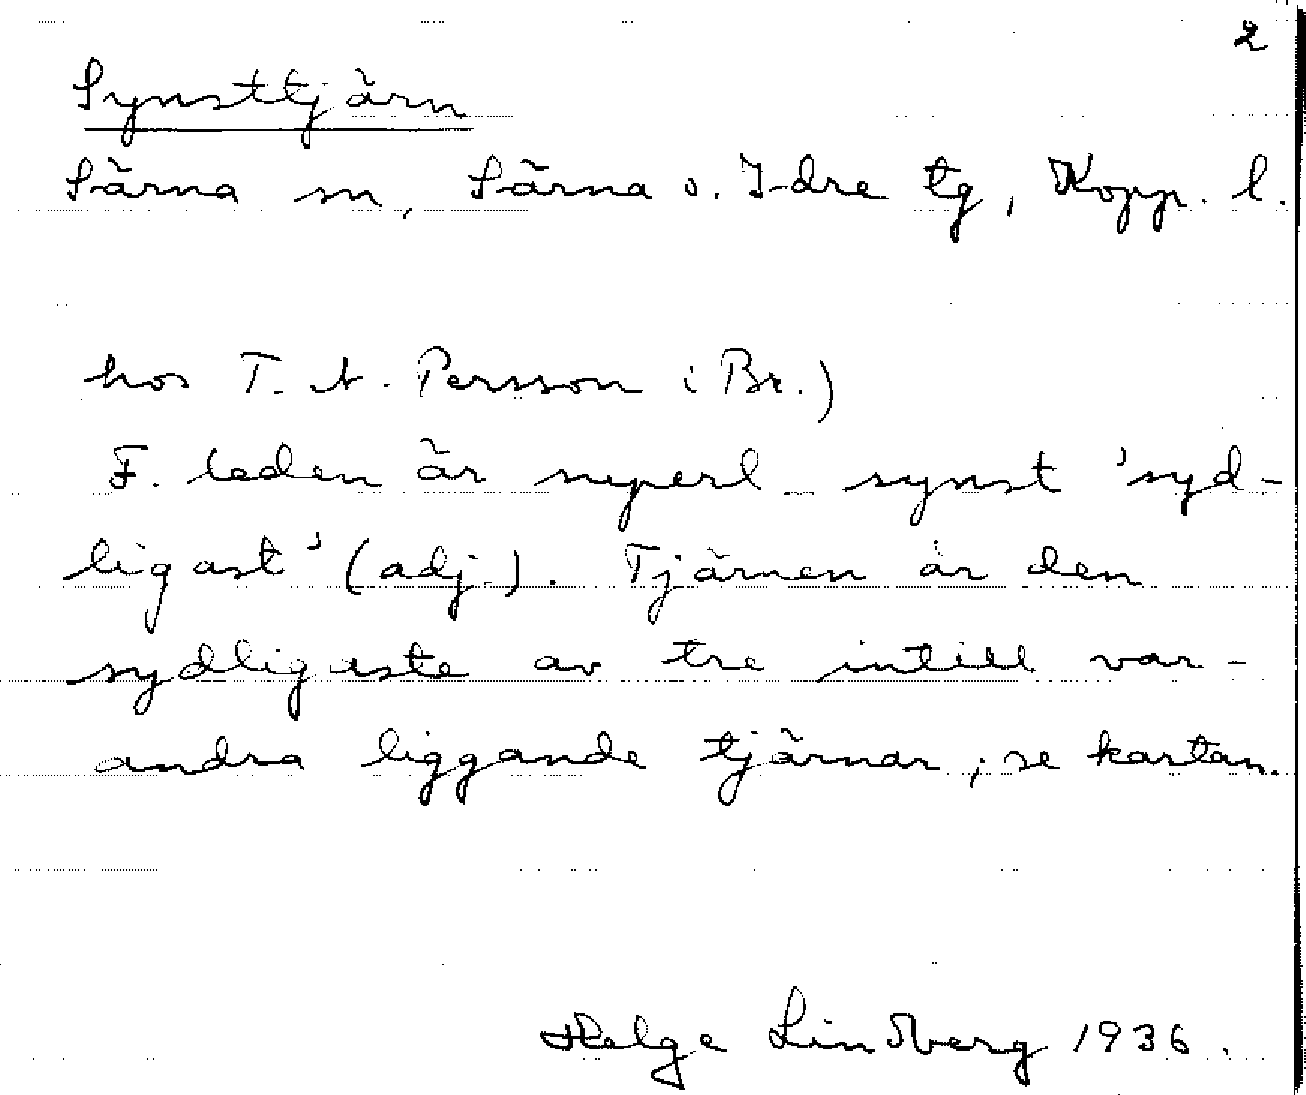 2
Synsttjärn
Särna sn, Särna o. Idre tg, Kopp. l.
hos T. A. Persson i Br.)
F. leden är superl. synst 'syd-
ligast' (adj.). Tjärnen är den
sydligaste av tre intill var-
andra liggande tjärnar, se kartan.
Helge Lindberg 1936.